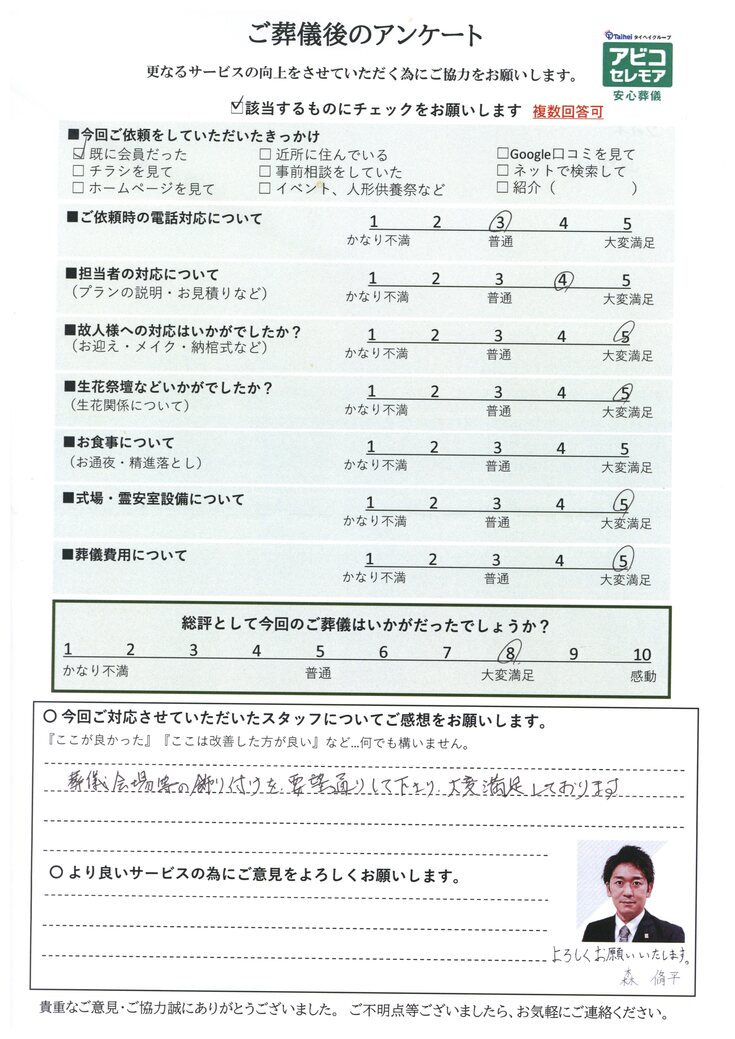 ご葬儀後のアンケート
Taihei タイヘイグループ
アビコ
セレモア
安心葬儀
更なるサービスの向上をさせていただく為にご協力をお願いします。
☑該当するものにチェックをお願いします 複数回答可
■今回ご依頼をしていただいたきっかけ
☑ 既に会員だった □ 近所に住んでいる □Google口コミを見て
□ チラシを見て □ 事前相談をしていた □ ネットで検索して
□ ホームページを見て □ イベント、人形供養祭など □ 紹介（ ）
■ご依頼時の電話対応について 1 2 3 4 5
かなり不満 普通 大変満足
■担当者の対応について 1 2 3 4 5
（プランの説明・お見積りなど） かなり不満 普通 大変満足
■故人様への対応はいかがでしたか？ 1 2 3 4 5
（お迎え・メイク・納棺式など） かなり不満 普通 大変満足
■生花祭壇などいかがでしたか？ 1 2 3 4 5
（生花関係について） かなり不満 普通 大変満足
■お食事について 1 2 3 4 5
（お通夜・精進落とし） かなり不満 普通 大変満足
■式場・霊安室設備について 1 2 3 4 5
かなり不満 普通 大変満足
■葬儀費用について 1 2 3 4 5
かなり不満 普通 大変満足
総評として今回のご葬儀はいかがだったでしょうか？
1 2 3 4 5 6 7 8 9 10
かなり不満 普通 大変満足 感動
〇 今回ご対応させていただいたスタッフについてご感想をお願いします。
『ここが良かった』『ここは改善した方が良い』など…何でも構いません。
葬儀会場等の飾り付けを要望通りして下さり、大変満足しております
〇 より良いサービスの為にご意見をよろしくお願いします。
よろしくお願いいたします。
森 脩平
貴重なご意見・ご協力誠にありがとうございました。 ご不明点等ございましたら、お気軽にご連絡ください。